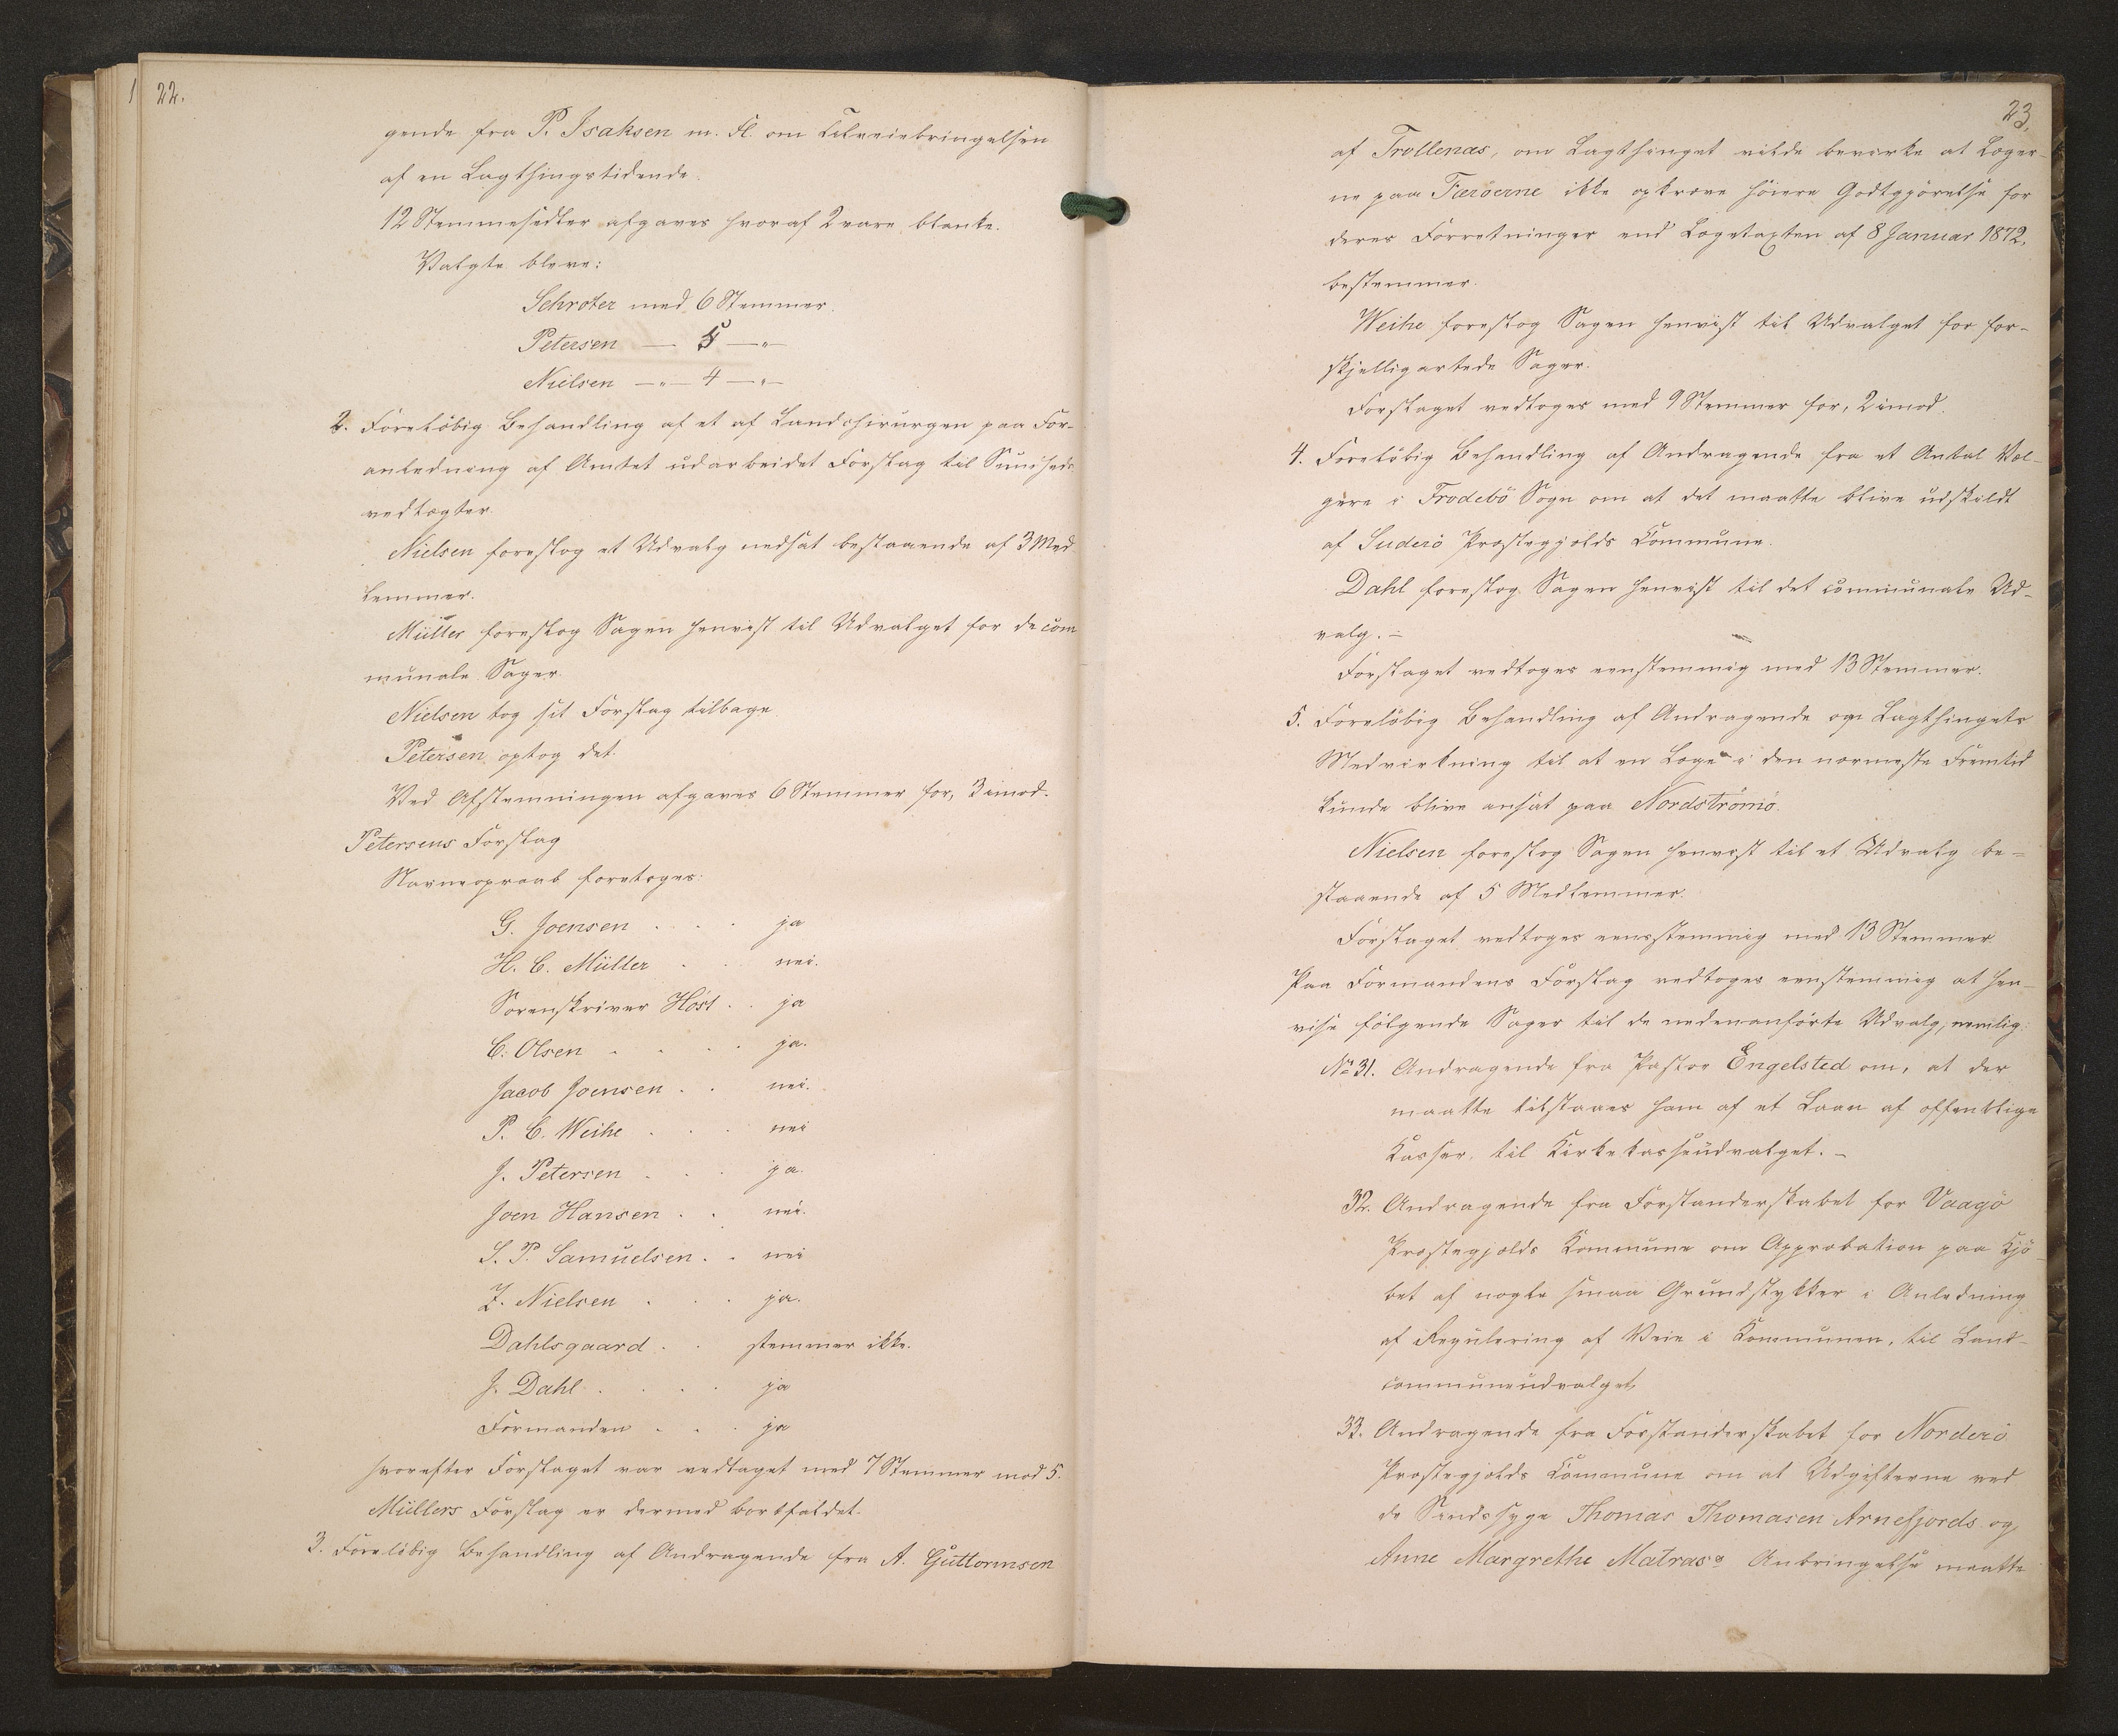 22.
gende fra P. Isaksen m. Fl. om Tilveiebringelsen
af en Lagthingstidende.
12 Stemmesedler afgaves hvoraf 2 vare blanke.
Valgte bleve:
Schroter med 6 Stemmer.
Petersen — 5 —"—
Nielsen —"— 4 —"—
2. Foreløbig Behandling af et af Landchirurgen paa For-
anledning af Amtet udarbeidet Forslag til Sundheds
vedtægter.
Nielsen foreslog et Udvalg nedsat bestaaende af 3 Med
lemmer.
Müller foreslog Sagen henvist til Udvalget for de com
munale Sager.
Nielsen tog sit Forslag tilbage
Petersen optog det.
Ved Afstemningen afgaves 6 Stemmer for, 3 imod.
Petersens Forslag
Navneopraab foretoges:
G. Joensen . . . . ja
H. C. Müller . . nei.
Sorenskriver Höst . . ja
C. Olsen . . . . ja.
Jacob Joensen . . nei.
P. C. Weihe . . . nei
J. Petersen . . . ja.
Joen Hansen . . nei.
S. P. Samuelsen . . nei
Z. Nielsen . . . ja.
Dahlsgaard . . stemmer ikke.
J. Dahl . . . . ja
Formanden . . . ja
hvorefter Forslaget var vedtaget med 7 Stemmer mod 5.
Müllers Forslag er dermed bortfaldet.
3. Foreløbig Behandling af Andragende fra A. Guttormsen
23.
af Trollenæs, om Lagthinget vilde bevirke at Læger-
ne paa Færöerne ikke opkræve höiere Godtgjörelse for
deres Forretninger end Lægetaxten af 8 Januar 1872.
bestemmer.
Weihe foreslog Sagen henvist til Udvalget for for-
skjelligartede Sager.
Forslaget vedtoges med 9 Stemmer for, 2 imod.
4. Foreløbig Behandling af Andragende fra et Antal Væl-
gere i Frodebö Sogn om at det maatte blive udskildt
af Suderö Præstegjelds Commune.
Dahl foreslog Sagen henvist til det communale Ud-
valg. –
Forslaget vedtoges eenstemmig med 13 Stemmer.
5. Foreløbig Behandling af Andragende om Lagthingets
Medvirkning til at en Læge i den nærmeste Fremtid
kunde blive ansat paa Nordströmö.
Nielsen foreslog Sagen henvist til et Udvalg be-
staaende af 5 Medlemmer.
Forslaget vedtoges eensstemmig med 13 Stemmer.
Paa Formandens Forslag vedtoges eenstemmig at hen-
vise fölgende Sager til de nedenanförte Udvalg, nemlig:
No 31. Andragende fra Pastor Engelsted om, at der
maatte tilstaaes ham af et Laan af offentlige
Kasser, til Kirkekasseudvalget. –
32. Andragende fra Forstanderskabet for Vaagö
Præstegjelds Kommune om Approbation paa Kjö-
bet af nogle smaa Grundstykker i Anledning
af Regulering af Veie i Kommunen, til Land-
communeudvalget,
33. Andragende fra Forstanderskabet for Norderö
Præstegjelds Commune om at Udgifterne ved
de Sindssyge Thomas Thomasen Arnefjords og
Anne Margrethe Matras's Anbringelse maatte